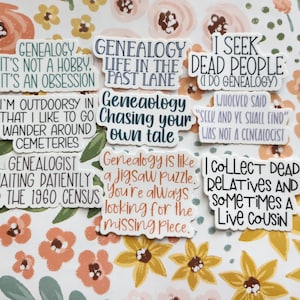 GENEALOGY
IT'S NOT A HOBBY,
IT'S AN OBSESSION
GENEALOGY
LIFE IN THE
PAST LANE
I SEEK
DEAD PEOPLE
(I DO GENEALOGY)
I'M OUTDOORSY IN
THAT I LIKE TO GO
WANDER AROUND
CEMETERIES
Geneaology
Chasing your
own tale
WHOEVER SAID
"SEEK AND YE SHALL FIND"
WAS NOT A GENEALOGIST
GENEALOGIST
WAITING PATIENTLY
THE 1960 CENSUS
Genealogy is like
a jigsaw puzzle.
You're always
looking for the
missing piece.
I COLLECT DEAD
RELATIVES AND
SOMETIMES A
LIVE COUSIN